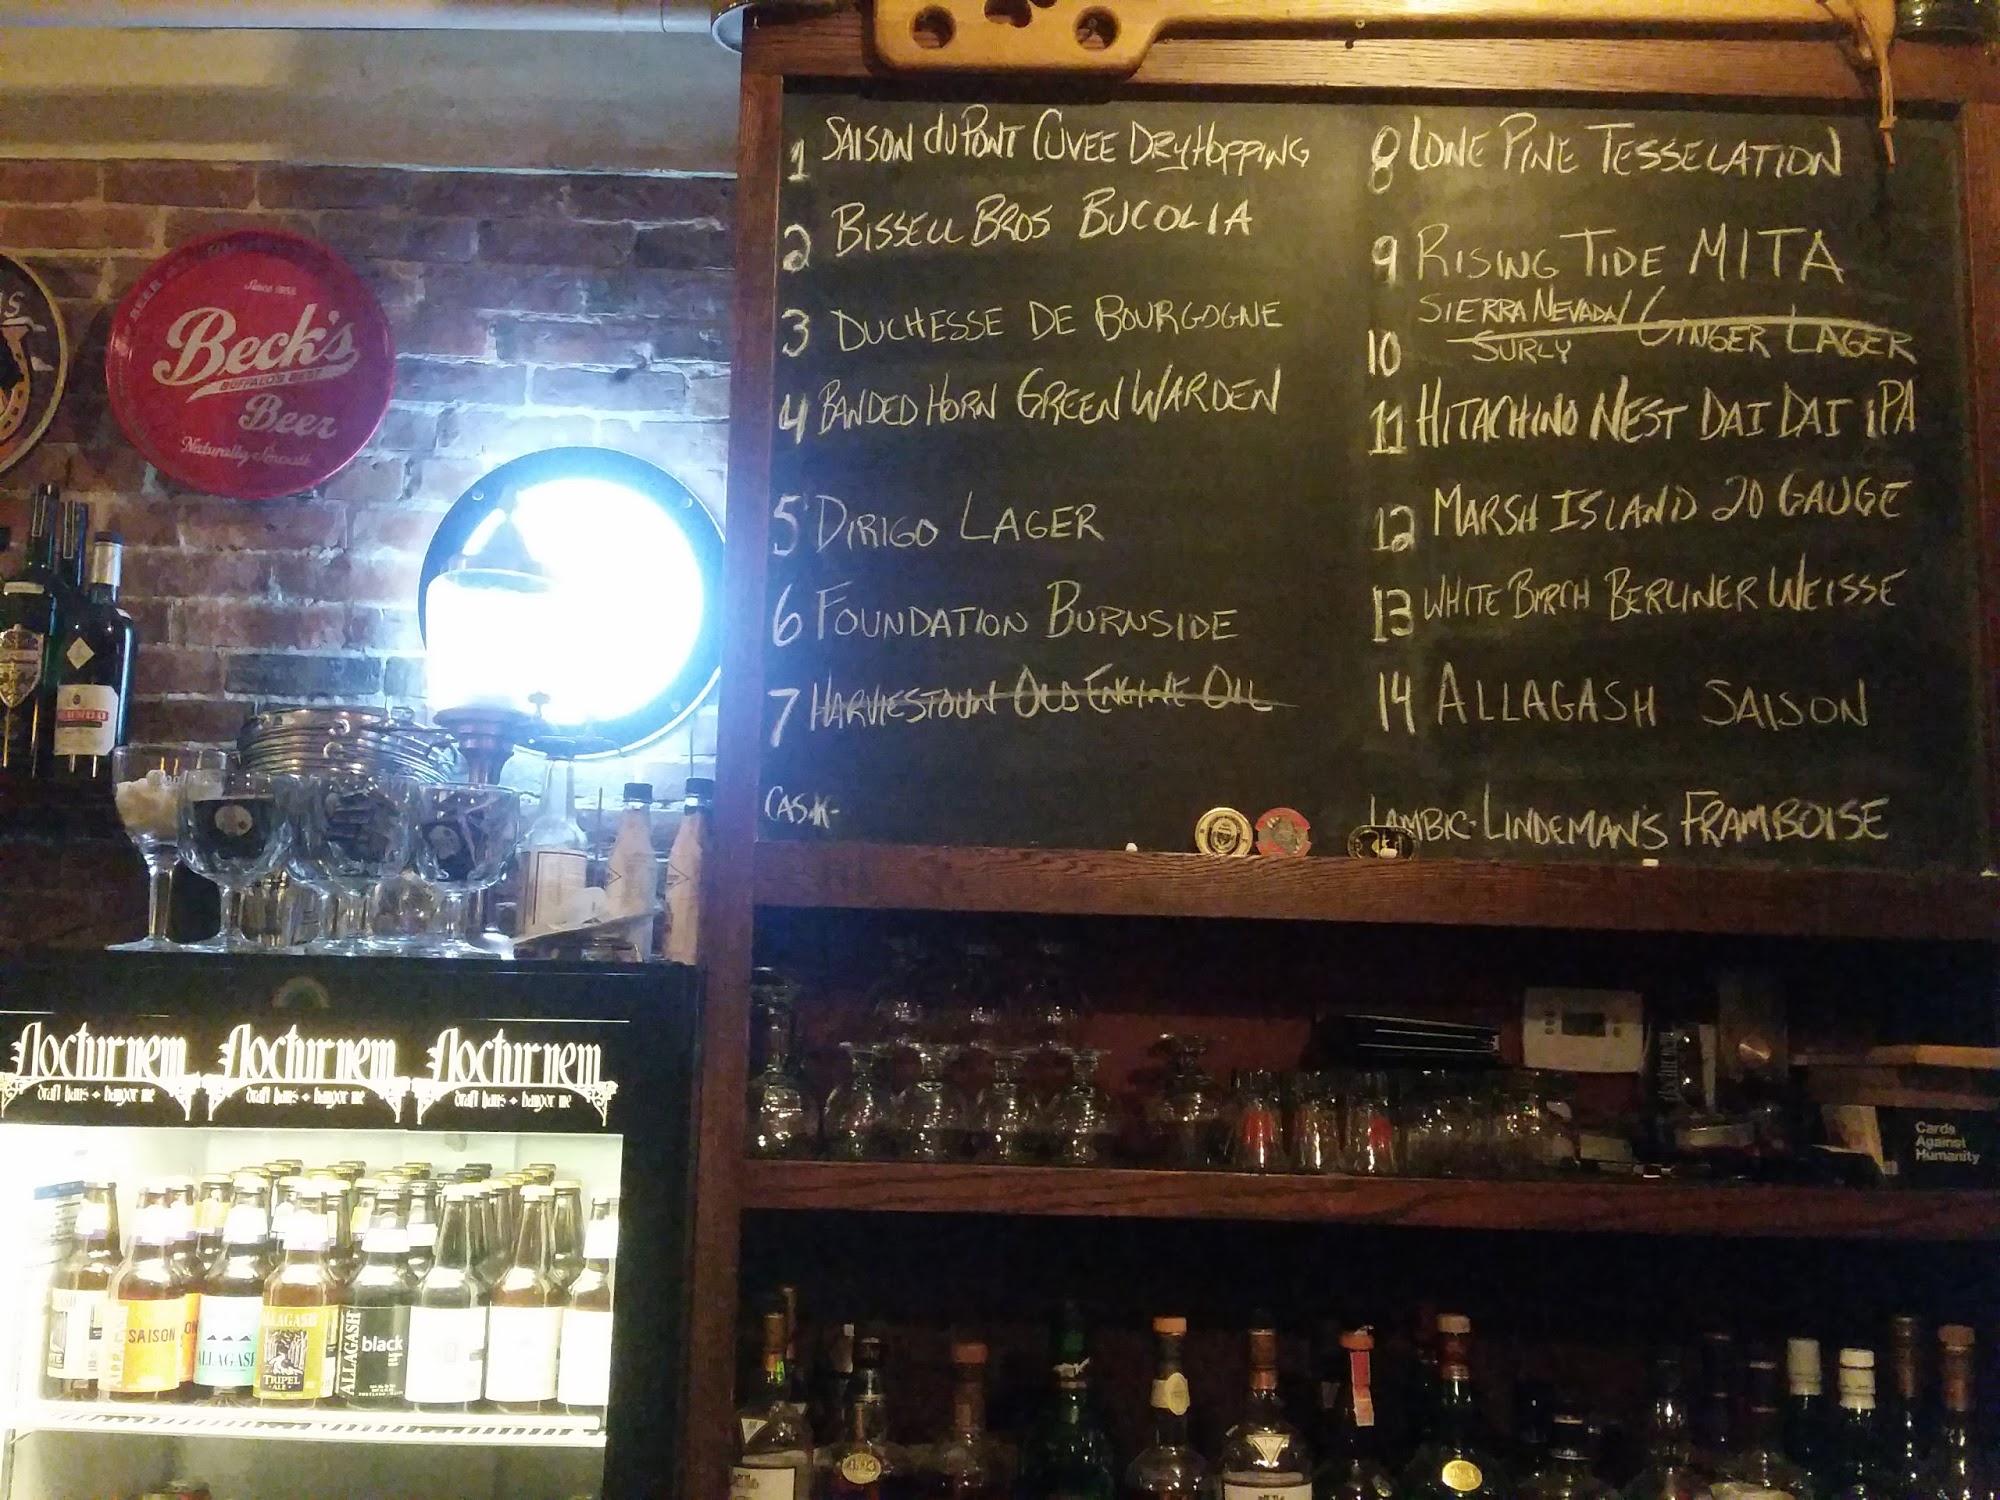 1 SAISON duPONT CUVEE DRYHOPPING
2 BISSELL BROS BUCOLIA
3 DUCHESSE DE BOURGOGNE
4 BANDED HORN GREEN WARDEN
5 DIRIGO LAGER
6 FOUNDATION BURNSIDE
7 HARVIESTOUN OLD ENGINE OIL
CASK-
8 LONE PINE TESSELATION
9 RISING TIDE MITA
SIERRA NEVADA/
10 SURLY GINGER LAGER
11 HITACHINO NEST DAI DAI IPA
12 MARSH ISLAND 20 GAUGE
13 WHITE BIRCH BERLINER WEISSE
14 ALLAGASH SAISON
LAMBIC-LINDEMAN'S FRAMBOISE
BEER
Since 1855
Beck's
BUFFALO'S BEST
Beer
Naturally Smooth
Nocturnem Nocturnem Nocturnem
draft haus + bangor me draft haus + bangor me draft haus + bangor me
SAISON
ALLAGASH
ALLAGASH
TRIPEL
ALE
ALLAGASH
black
Cards
Against
Humanity